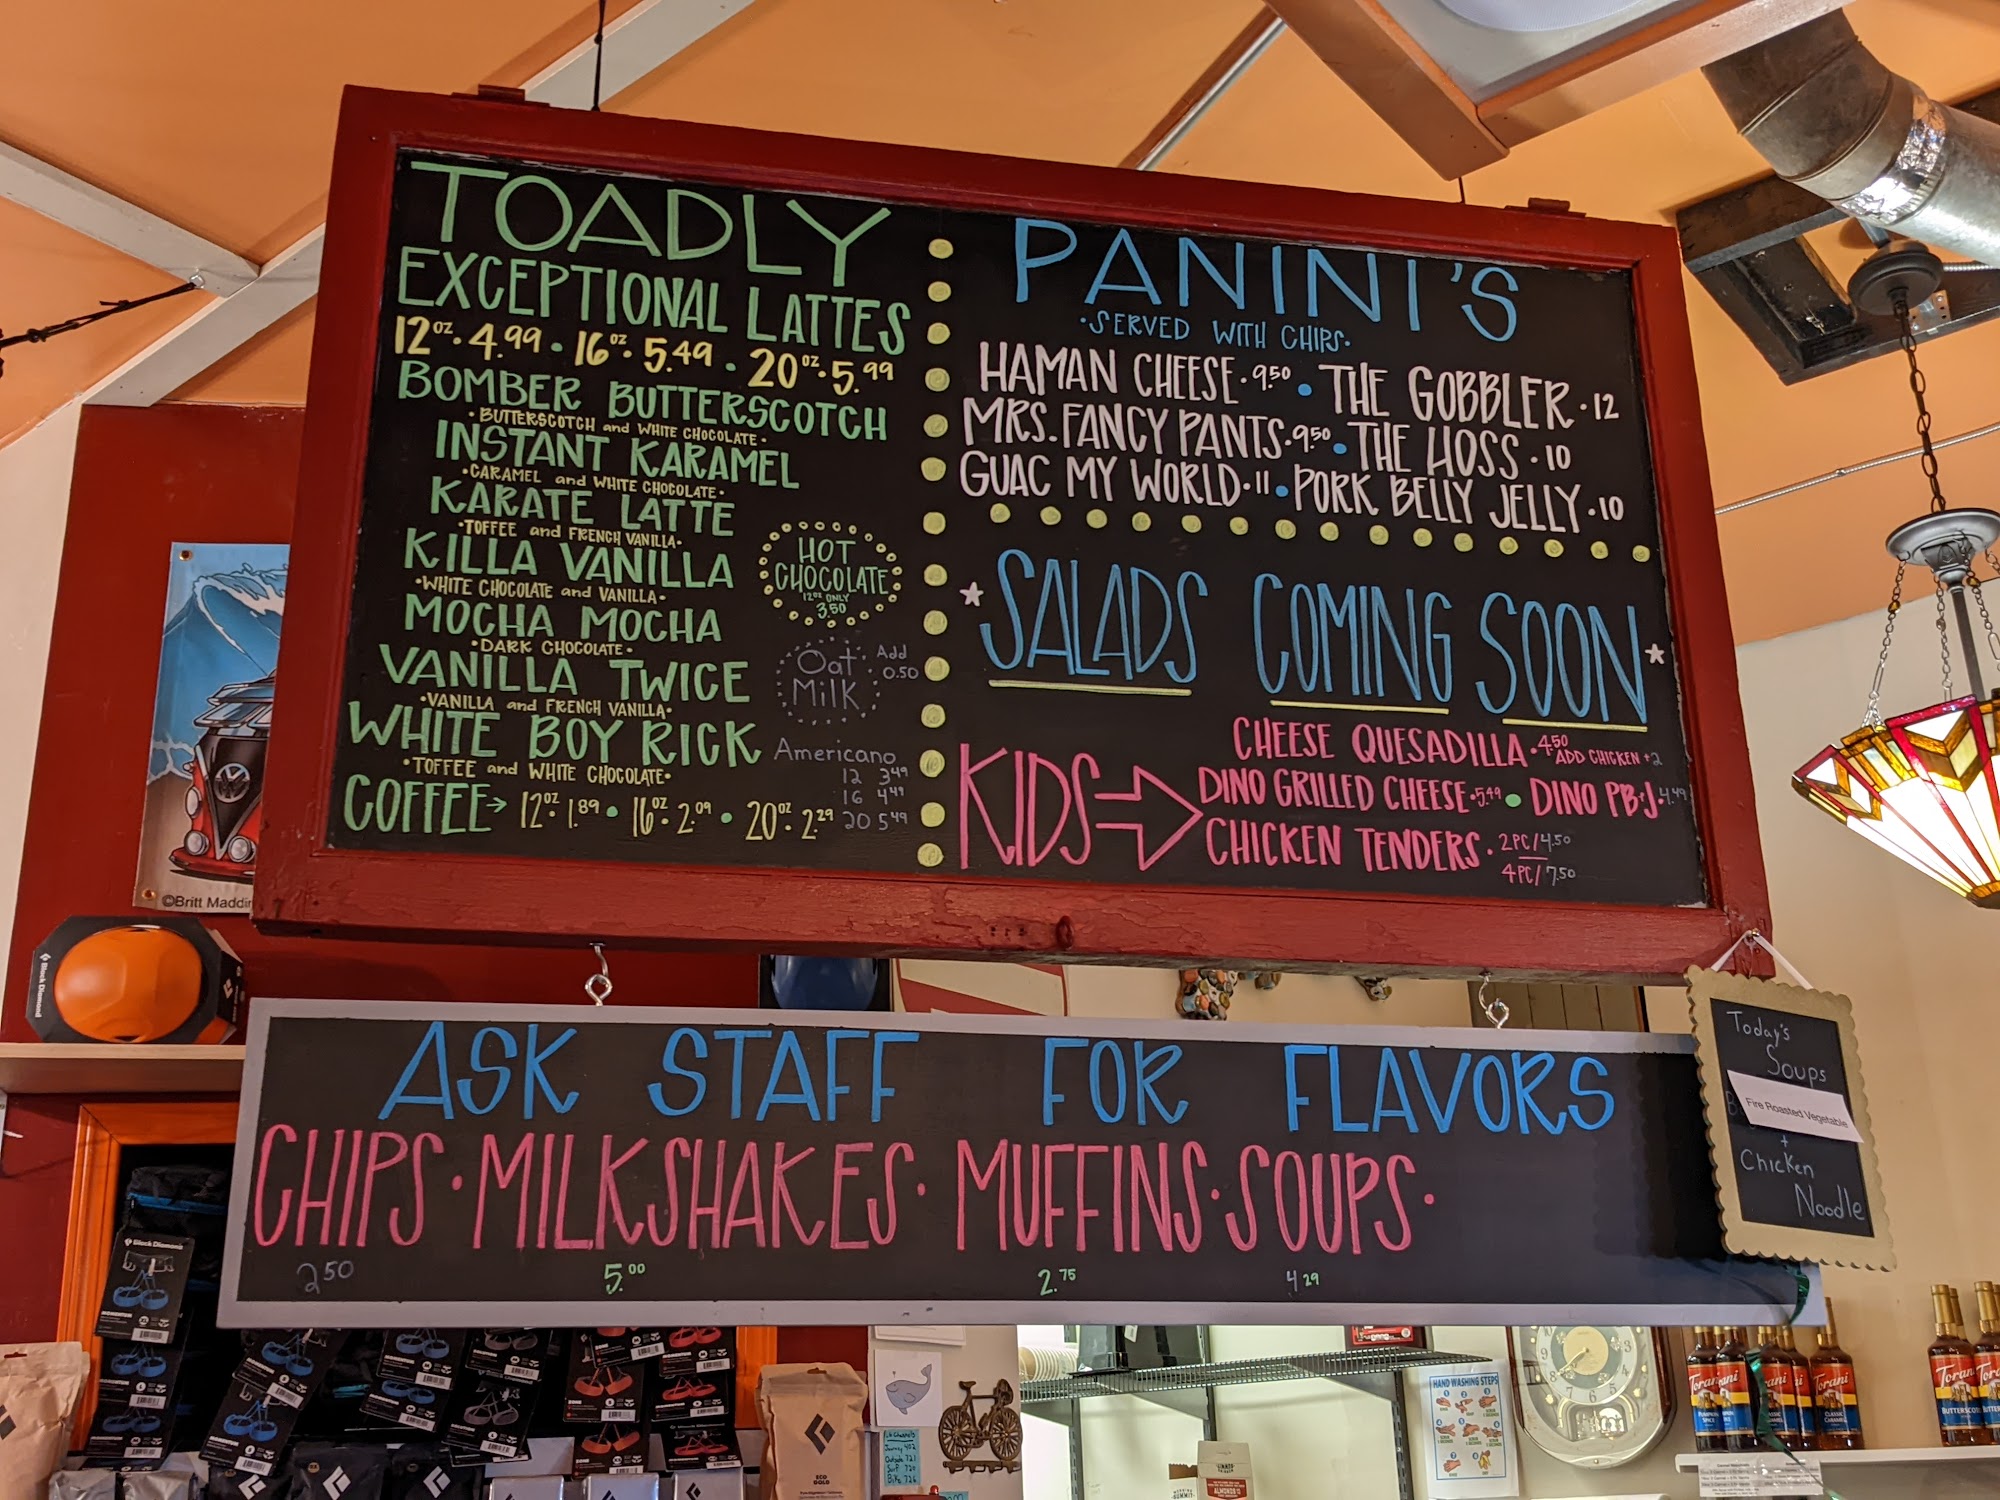 TOADLY
EXCEPTIONAL LATTES
12oz · 4.99 · 16oz · 5.49 · 20oz · 5.99
BOMBER BUTTERSCOTCH
· BUTTERSCOTCH and WHITE CHOCOLATE ·
INSTANT KARAMEL
· CARAMEL and WHITE CHOCOLATE ·
KARATE LATTE
· TOFFEE and FRENCH VANILLA ·
KILLA VANILLA
· WHITE CHOCOLATE and VANILLA ·
MOCHA MOCHA
· DARK CHOCOLATE ·
VANILLA TWICE
· VANILLA and FRENCH VANILLA ·
WHITE BOY RICK
· TOFFEE and WHITE CHOCOLATE ·
COFFEE → 12oz · 1.89 · 16oz · 2.09 · 20oz · 2.29
HOT
CHOCOLATE
12oz ONLY
3.50
Oat
Milk
Add
0.50
Americano
12 3.49
16 4.49
20 5.49
PANINI'S
· SERVED WITH CHIPS ·
HAMAN CHEESE · 9.50 · THE GOBBLER · 12
MRS. FANCY PANTS · 9.50 · THE HOSS · 10
GUAC MY WORLD · 11 · PORK BELLY JELLY · 10
SALADS COMING SOON
KIDS
CHEESE QUESADILLA · 4.50 ADD CHICKEN +2
DINO GRILLED CHEESE · 5.49 · DINO PB&J · 4.49
CHICKEN TENDERS · 2PC/4.50
4PC/7.50
©Britt Maddin
Black Diamond
ASK STAFF FOR FLAVORS
CHIPS · MILKSHAKES · MUFFINS · SOUPS ·
2.50 5.00 2.75 4.29
Today's
Soups
Fire Roasted Vegetable
+
Chicken
Noodle
Black Diamond
MOMENTUM
ECO
GOLD
Journey 402
Outside 721
Surf 720
Bike 726
HAND WASHING STEPS
ALMONDS
Torani
Torani
CLASSIC
CARAMEL
Torani
BUTTERSCOTCH